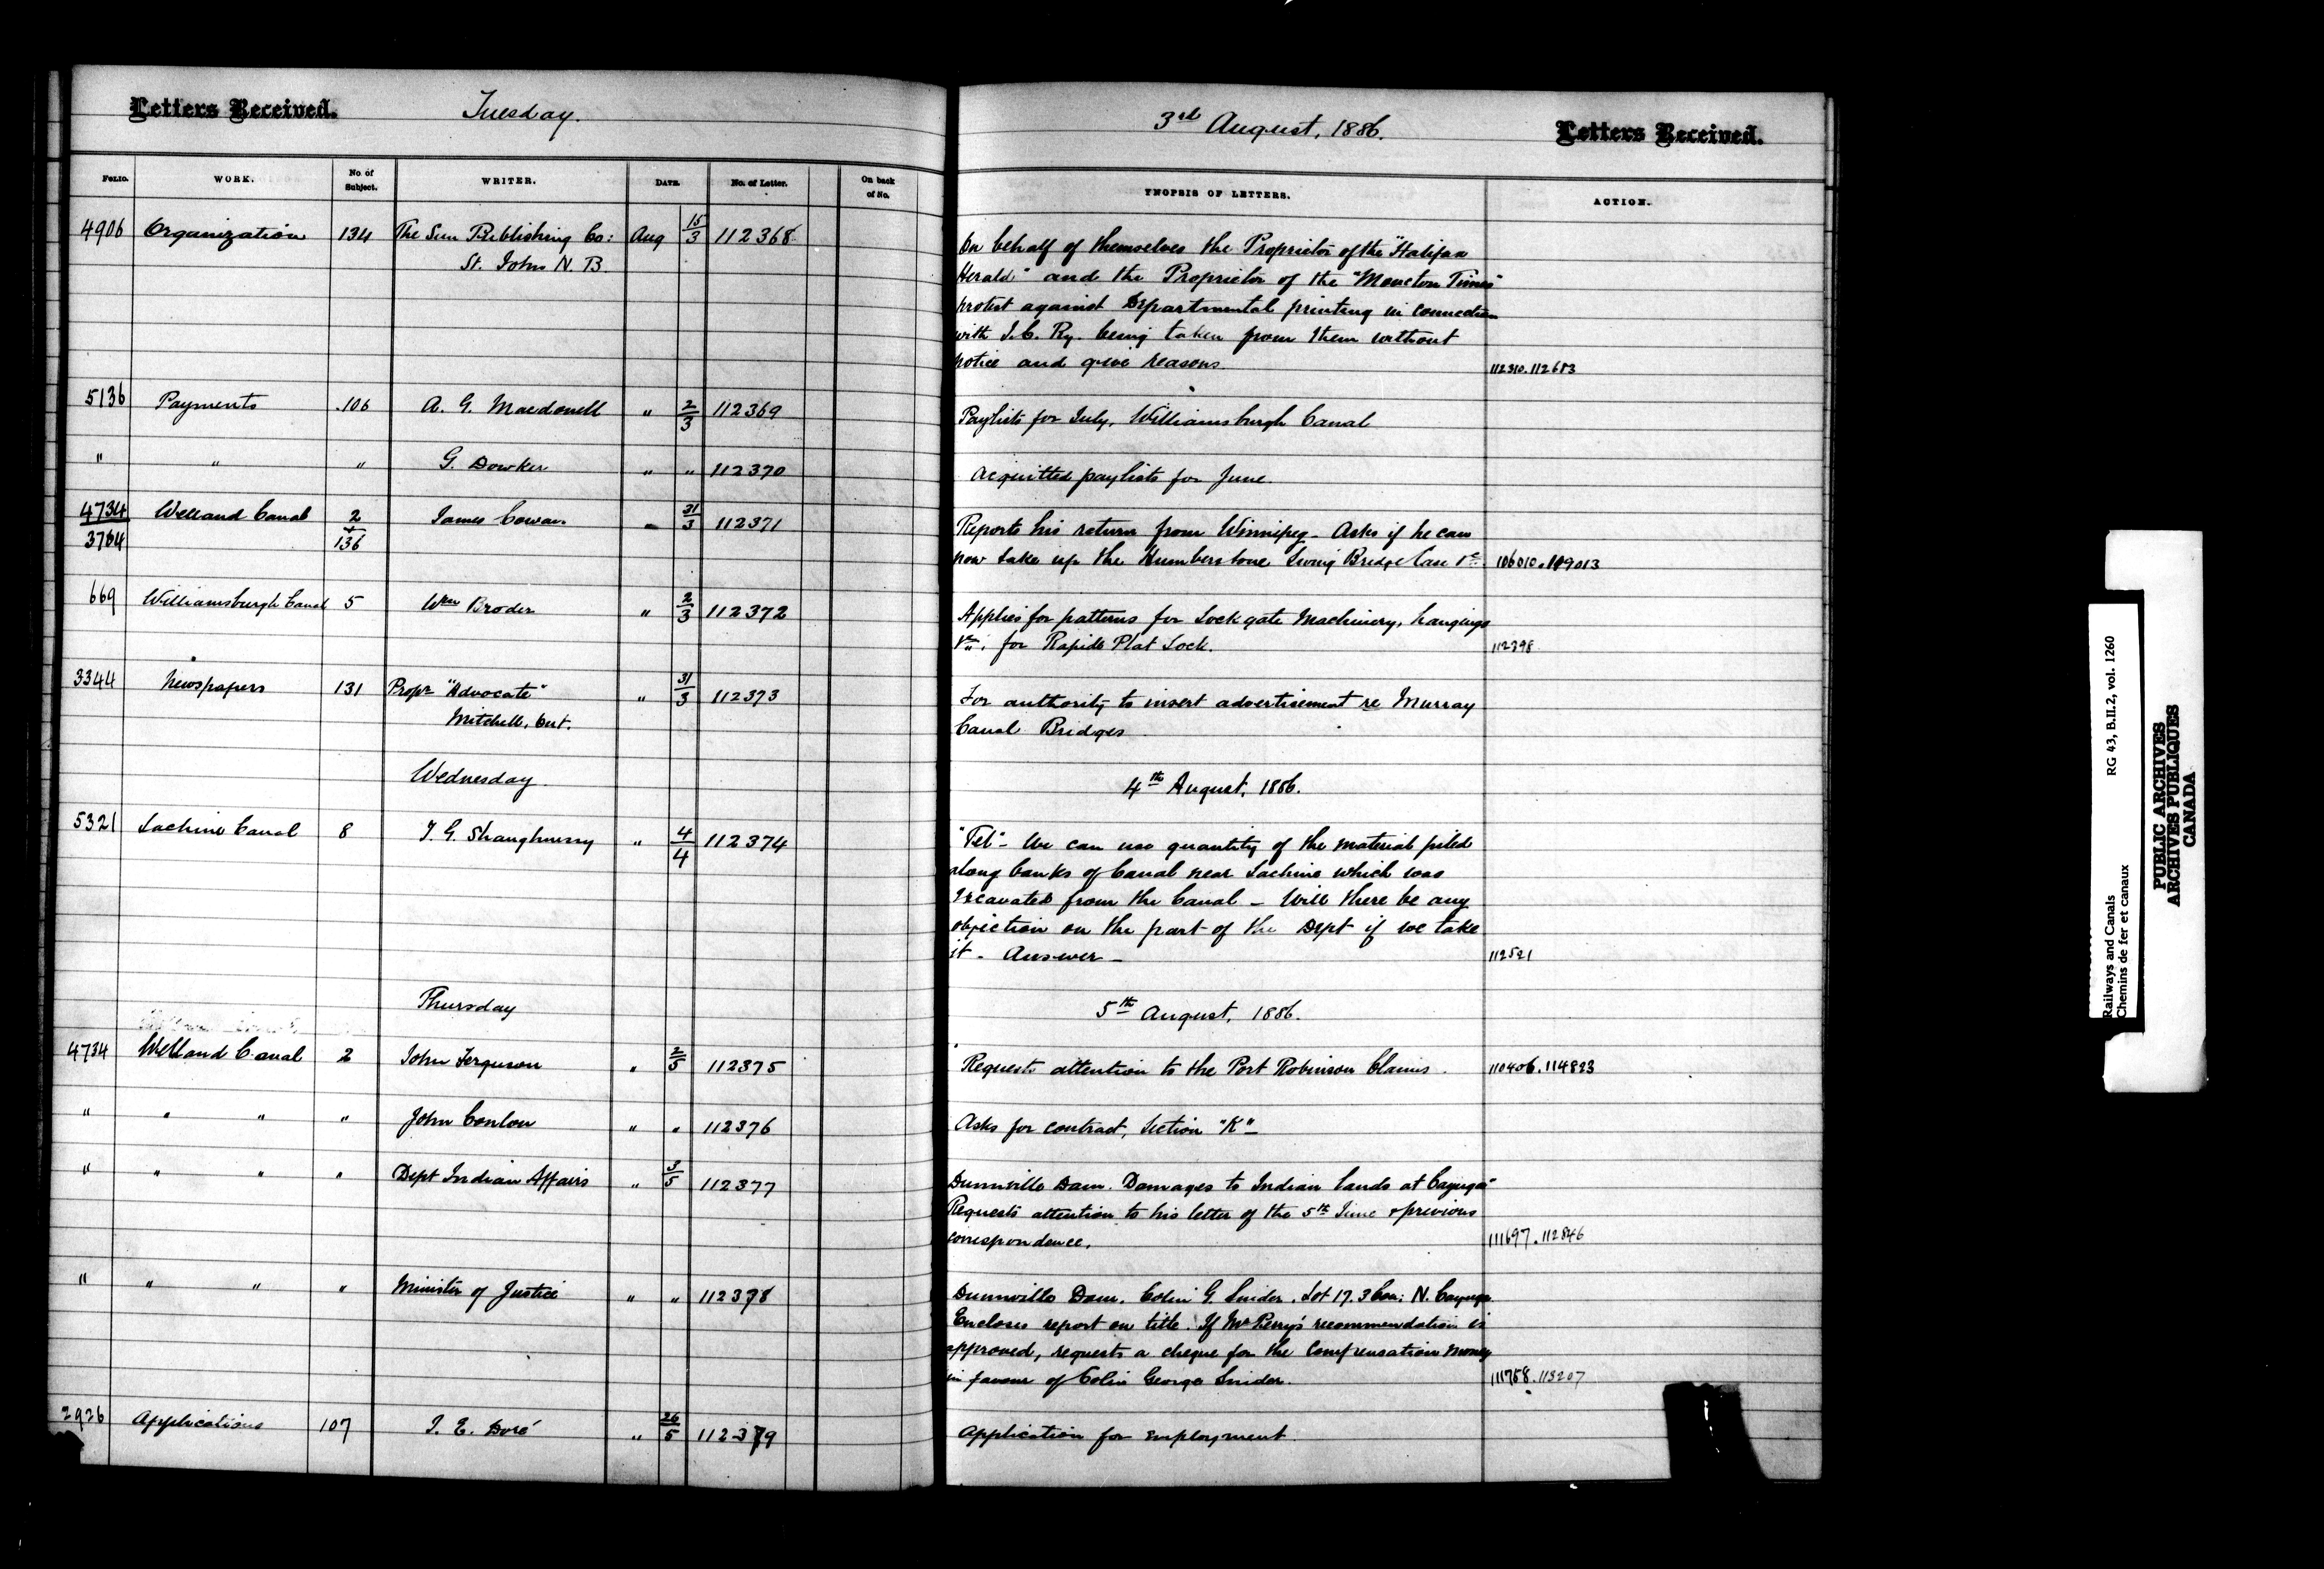 Letters Received.
Tuesday.
3rd August, 1886.
Letters Received.
Folio. WORK. No. of Subject. WRITER. DATE. No. of Letter. On back of No. YNOPSIS OF LETTERS. ACTION.
4906 Organization 134 The Sun Publishing Co: Aug 15/3 112368 On behalf of themselves the Proprietor of the "Halifax
St. Johns N. B. Herald" and the Proprietor of the "Moncton Times"
protest against Departmental printing in connection
with I.C. Ry. being taken from them without
notice and give reasons. 112310.112683
5136 Payments 106 A. G. Macdonell " 2/3 112369 Paylists for July, Williamsburgh Canal
" " " G. Dowker " " 112370 Acquitted paylists for June
4734 Welland Canal 2 James Cowan " 31/3 112371 Reports his return from Winnipeg - Asks if he can
3704 + 136 now take up the Humberstone Swing Bridge Case &c 106010.109013
669 Williamsburgh Canal 5 Wm Broder " 2/3 112372 Applies for patterns for Lock gate Machinery, hangings
&c. for Rapide Plat Lock. 112398
3344 Newspapers 131 Propr "Advocate" " 31/3 112373 For authority to insert advertisement re Murray
Mitchell, Ont. Canal Bridges
Wednesday 4th August, 1886.
5321 Lachine Canal 8 T. G. Shaughnessy " 4/4 112374 "Tel" - We can use quantity of the material piled
along banks of Canal near Lachine which was
excavated from the Canal - Will there be any
objection on the part of the Dept if we take
it - Answer - 112521
Thursday 5th August, 1886.
4734 Welland Canal 2 John Ferguson " 2/5 112375 Requests attention to the Port Robinson Claims. 110406.114823
" " " " John Conlon " " 112376 Asks for contract, Section "K" -
" " " " Dept Indian Affairs " 3/5 112377 Dunnville Dam. Damages to Indian lands at Cayuga
Requests attention to his letter of the 5th June & previous
correspondence. 111697.112846
" " " " Minister of Justice " " 112378 Dunnville Dam. Colin G. Snider. Lot 17. 3 Con: N. Cayuga
Encloses report on title. If Mr Perry's recommendation is
approved, requests a cheque for the compensation money
in favour of Colin George Snider. 111758.113207
2926 Applications 107 J. E. Doré " 26/5 112379 Application for employment.
Railways and Canals RG 43, B.II.2, vol. 1260
Chemins de fer et canaux
PUBLIC ARCHIVES
ARCHIVES PUBLIQUES
CANADA